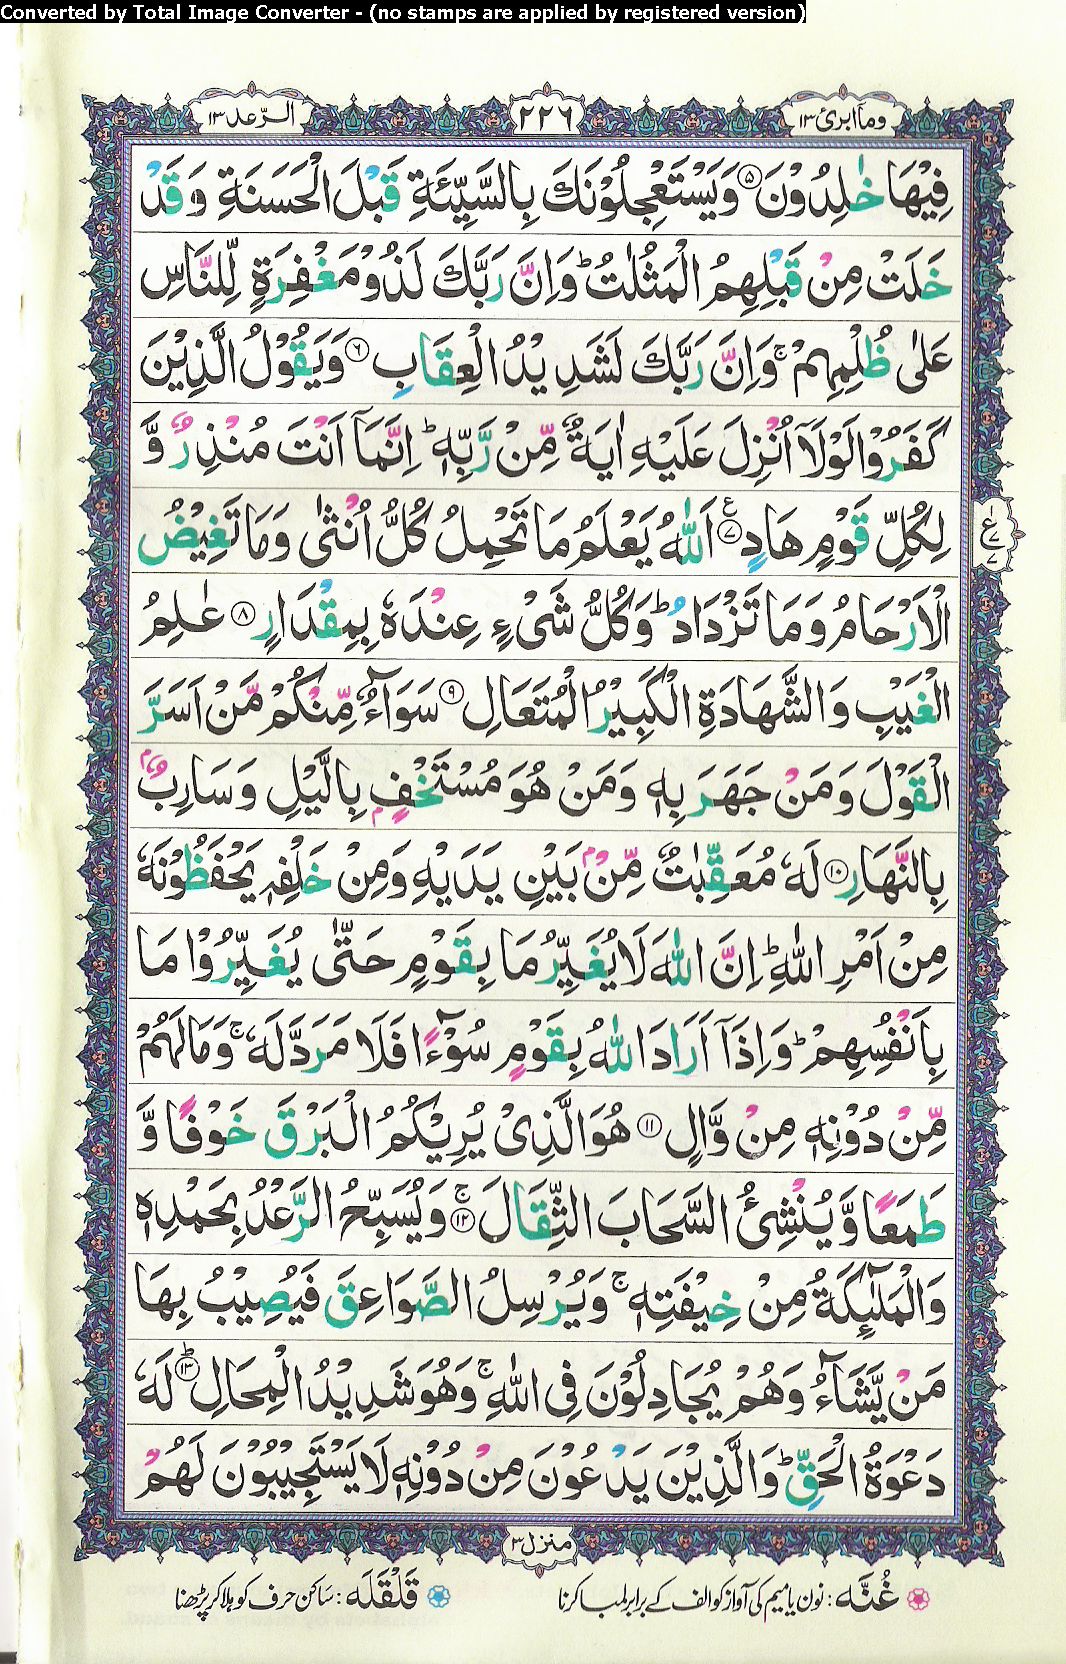 Converted by Total Image Converter - (no stamps are applied by registered version)
الرّعد ١٣
٢٢٦
وما ابرئ ١٣
فِيْهَا خٰلِدُوْنَ ۵ وَيَسْتَعْجِلُوْنَكَ بِالسَّيِّئَةِ قَبْلَ الْحَسَنَةِ وَقَدْ
خَلَتْ مِنْ قَبْلِهِمُ الْمَثُلٰتُ ؕ وَاِنَّ رَبَّكَ لَذُوْ مَغْفِرَةٍ لِّلنَّاسِ
عَلٰى ظُلْمِهِمْ ۚ وَاِنَّ رَبَّكَ لَشَدِيْدُ الْعِقَابِ ۶ وَيَقُوْلُ الَّذِيْنَ
كَفَرُوْا لَوْلَاۤ اُنْزِلَ عَلَيْهِ اٰيَةٌ مِّنْ رَّبِّهٖ ؕ اِنَّمَاۤ اَنْتَ مُنْذِرٌ وَّ
لِكُلِّ قَوْمٍ هَادٍ ۷ ع اَللّٰهُ يَعْلَمُ مَا تَحْمِلُ كُلُّ اُنْثٰى وَمَا تَغِيْضُ
الْاَرْحَامُ وَمَا تَزْدَادُ ؕ وَكُلُّ شَىْءٍ عِنْدَهٗ بِمِقْدَارٍ ۸ عٰلِمُ
الْغَيْبِ وَالشَّهَادَةِ الْكَبِيْرُ الْمُتَعَالِ ۹ سَوَآءٌ مِّنْكُمْ مَّنْ اَسَرَّ
الْقَوْلَ وَمَنْ جَهَرَ بِهٖ وَمَنْ هُوَ مُسْتَخْفٍۭ بِالَّيْلِ وَسَارِبٌۢ
بِالنَّهَارِ ۱۰ لَهٗ مُعَقِّبٰتٌ مِّنْۢ بَيْنِ يَدَيْهِ وَمِنْ خَلْفِهٖ يَحْفَظُوْنَهٗ
مِنْ اَمْرِ اللّٰهِ ؕ اِنَّ اللّٰهَ لَا يُغَيِّرُ مَا بِقَوْمٍ حَتّٰى يُغَيِّرُوْا مَا
بِاَنْفُسِهِمْ ؕ وَاِذَاۤ اَرَادَ اللّٰهُ بِقَوْمٍ سُوْٓءًا فَلَا مَرَدَّ لَهٗ ۚ وَمَا لَهُمْ
مِّنْ دُوْنِهٖ مِنْ وَّالٍ ۱۱ هُوَ الَّذِىْ يُرِيْكُمُ الْبَرْقَ خَوْفًا وَّ
طَمَعًا وَّيُنْشِئُ السَّحَابَ الثِّقَالَ ۚ ۱۲ وَيُسَبِّحُ الرَّعْدُ بِحَمْدِهٖ
وَالْمَلٰٓئِكَةُ مِنْ خِيْفَتِهٖ ۚ وَيُرْسِلُ الصَّوَاعِقَ فَيُصِيْبُ بِهَا
مَنْ يَّشَآءُ وَهُمْ يُجَادِلُوْنَ فِى اللّٰهِ ۚ وَهُوَ شَدِيْدُ الْمِحَالِ ؕ ۱۳ لَهٗ
دَعْوَةُ الْحَقِّ ؕ وَالَّذِيْنَ يَدْعُوْنَ مِنْ دُوْنِهٖ لَا يَسْتَجِيْبُوْنَ لَهُمْ
منزل ٣
غُنَّه : نون یا میم کی آواز کو الف کے برابر لمبا کرنا
قَلْقَلَه : ساکن حرف کو ہلا کر پڑھنا